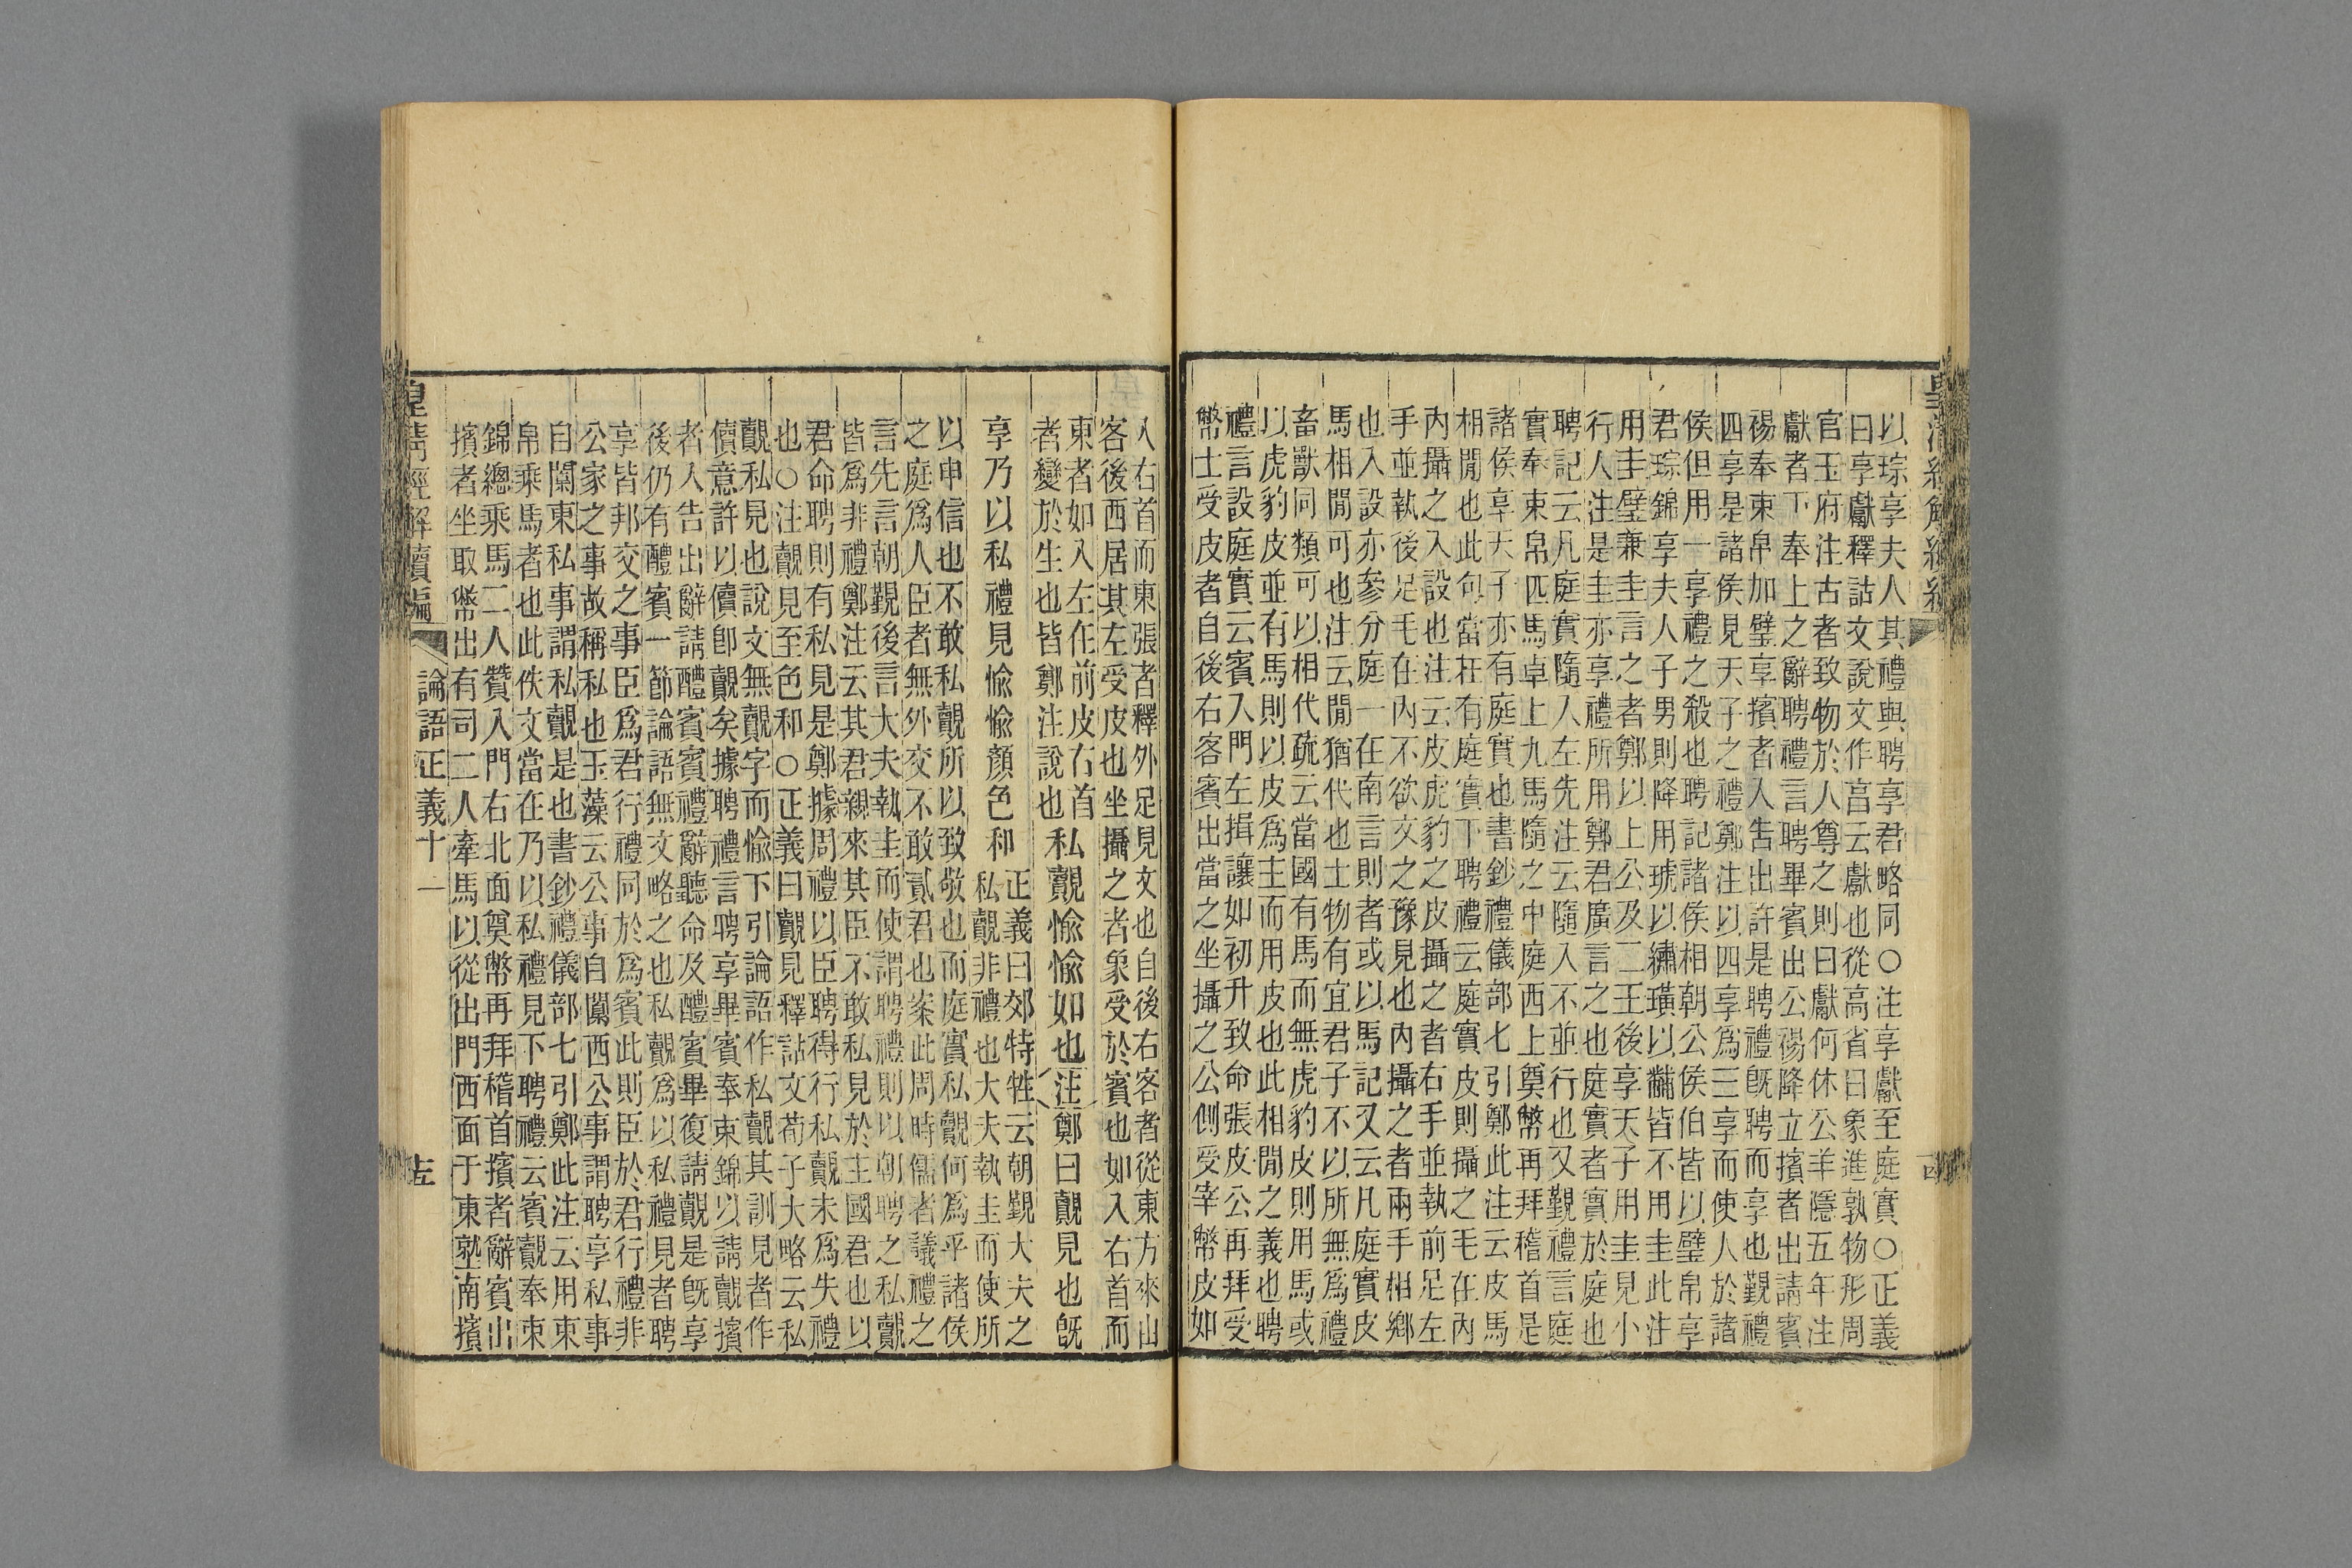 以琮享夫人其禮與聘享君略同○注享獻至庭實○正義
曰享獻釋詁文說文作亯云獻也從高省曰象進孰物形周
官玉府注古者致物於人尊之則曰獻何休公羊隱五年注
獻者下奉上之辭聘禮言聘畢賓出公裼降立擯者出請賓
裼奉束帛加璧享擯者入告出許是聘禮旣聘而享也覲禮
四享是諸侯見天子之禮鄭注以四享爲三享而使人於諸
侯但用一享禮之殺也聘記諸侯相朝公侯伯皆以璧帛享
君琮錦享夫人子男則降用琥以繡璜以黼皆不用圭此注
用圭璧兼圭言之者鄭以上公及二王後享天子用圭見小
行人注是圭亦享禮所用鄭君廣言之也庭實者實於庭也
聘記云凡庭實隨人左先注云隨入不並行也又覲禮言庭
實奉束帛匹馬卓上九馬隨之中庭西上奠幣再拜稽首是
諸侯享天子亦有庭實也書鈔禮儀部七引鄭此注云皮馬
相閒也此句當在有庭實下聘禮云庭實皮則攝之毛在內
內攝之入設也注云皮虎豹之皮攝之者右手並執前足左
手並執後足毛在內不欲文之豫見也內攝之者兩手相鄉
也入設亦參分庭一在南言則者或以馬記又云凡庭實皮
馬相閒可也注云閒猶代也士物有宜君子不以所無爲禮
畜獸同類可以相代疏云當國有馬而無虎豹皮則用馬或
以虎豹皮並有馬則以皮爲主而用皮也此相閒之義也聘
禮言設庭實云賓入門左揖讓如初升致命張皮公再拜受
幣士受皮者自後右客賓出當之坐攝之公側受宰幣皮如
入右首而東張者釋外足見文也自後右客者從東方來出
客後西居其左受皮也坐攝之者象受於賓也如入右首而
東者如入左在前皮右首
者變於生也皆鄭注說也
私覿愉愉如也注鄭曰覿見也旣
享乃以私禮見愉愉顏色和
正義曰郊特牲云朝覲大夫之
私覿非禮也大夫執圭而使所
以申信也不敢私覿所以致敬也而庭實私覿何爲乎諸侯
之庭爲人臣者無外交不敢貳君也案此周時儒者議禮之
言先言朝覲後言大夫執圭而使謂聘禮則以朝聘之私覿
皆爲非禮鄭注云其君親來其臣不敢私見於主國君也以
君命聘則有私見是鄭據周禮以臣聘得行私覿未爲失禮
也○注覿見至色和○正義曰覿見釋詁文荀子大略云私
覿私見也說文無覿字而愉下引論語作私覿其訓見者作
儥意許以儥卽覿矣據聘禮言聘享畢賓奉束錦以請覿擯
者入告出辭請醴賓賓禮辭聽命及醴賓畢復請覿是旣享
後仍有醴賓一節論語無文略之也私覿爲以私禮見者聘
享皆邦交之事臣爲君行禮同於爲賓此則臣於君行禮非
公家之事故稱私也玉藻云公事自闑西公事謂聘享私事
自闑東私事謂私覿是也書鈔禮儀部七引鄭此注云用束
帛乘馬者也此佚文當在乃以私禮見下聘禮云賓覿奉束
錦總乘馬二人贊入門右北面奠幣再拜稽首擯者辭賓出
擯者坐取幣出有司二人牽馬以從出門西面于東塾南擯
皇清經解續編
論語正義十一